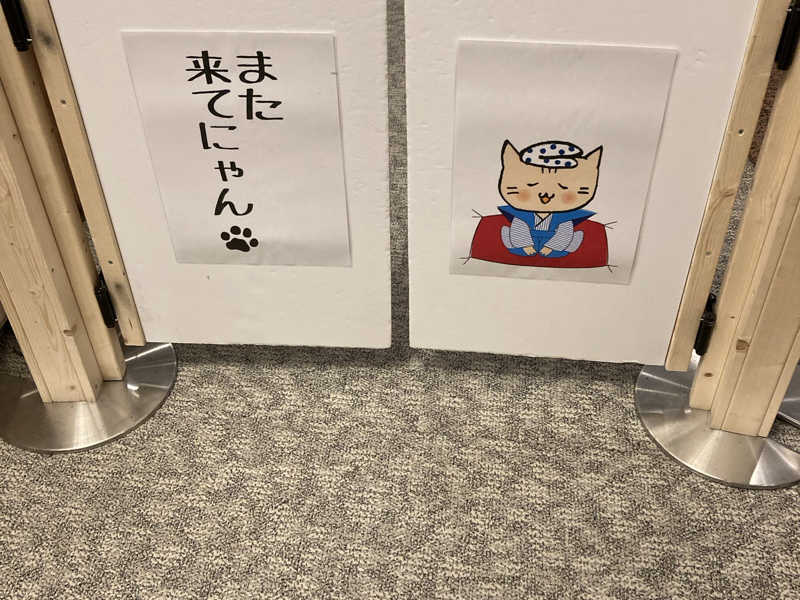 また
来てにゃん